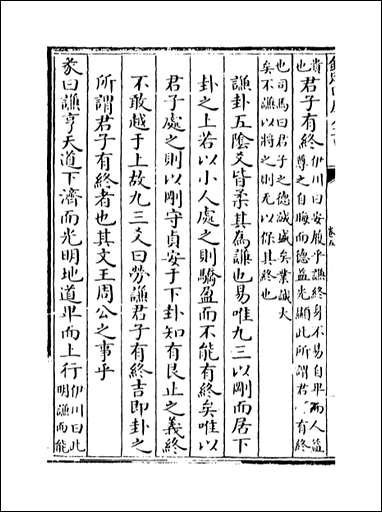 貴君子有終伊川曰安履乎謙終身不易自卑而人益
也尊之自晦而德益光顯此所謂君子有終
也司馬曰君子之德誠盛矣業誠大
矣不謙以將之則无以保其終也
謙卦五陰爻皆柔其為謙也易唯九三以剛而居下
卦之上若以小人處之則驕盈而不能有終矣唯以
君子處之則以剛守貞安于下卦知有艮止之義終
不敢越于上故九三爻曰勞謙君子有終吉即卦之
所謂君子有終者也其文王周公之事乎
彖曰謙亨天道下濟而光明地道卑而上行伊川曰此
明謙而能